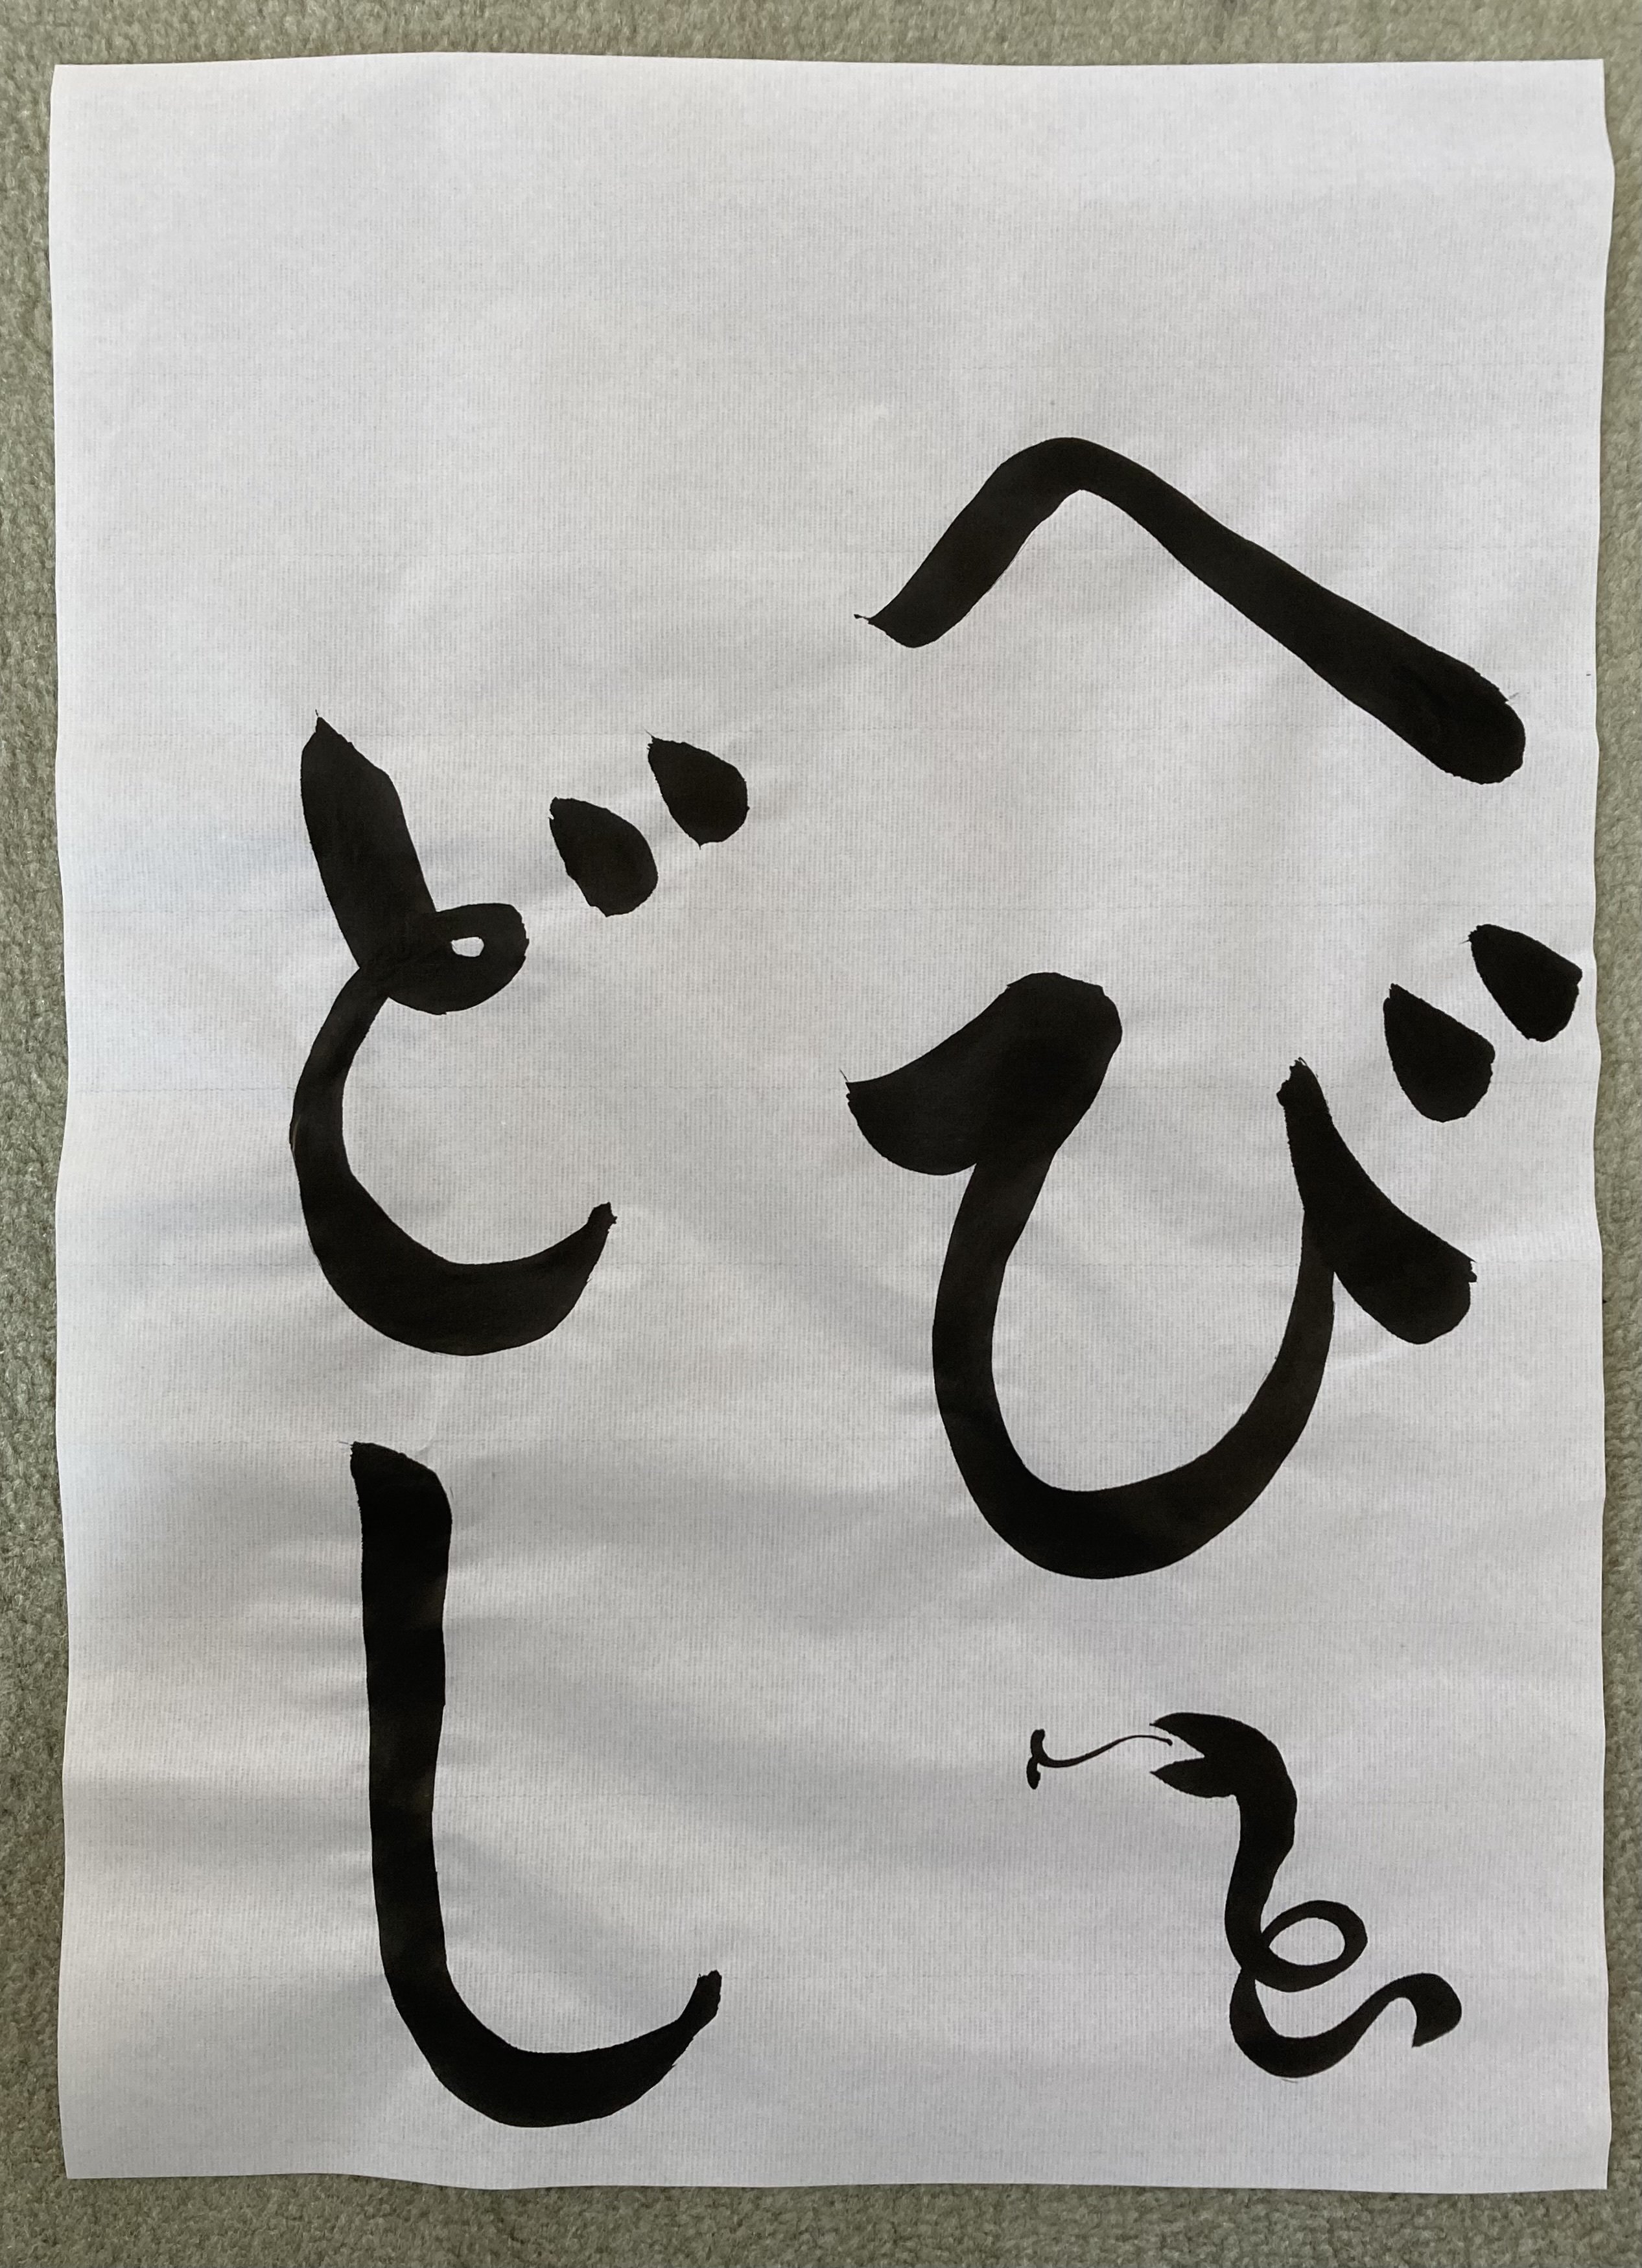 へび
どし